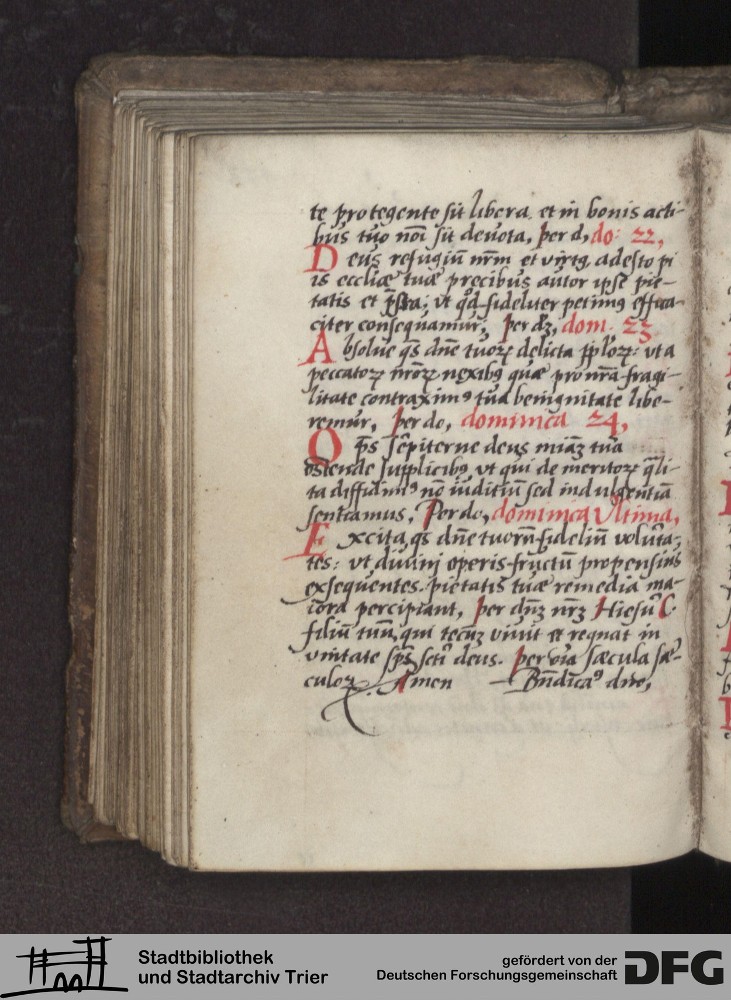 te protegente sit libera, et in bonis acti-
bus tuo noi sit deuota, per d, do: 22,
Deus refugiū nrm et virtꝰ, adesto pi
is eccliæ tuæ precibus autor ipse pie-
tatis et pſta: vt qd fideliter petimꝰ effica-
citer consequamur, per dz, dom. 23
Absolue qs dne tuoꝝ delicta pploꝝ: vt a
peccatoꝝ nroꝝ nexibꝰ quæ pro nrā fragi-
litate contraximꝰ tua benignitate libe-
remur, per do, dominica 24,
Ops sēpiterne deus miaz tua
ostende supplicibꝰ, vt qui de meritoꝝ qli-
ta diffidimꝰ nō iuditiū sed indulgentiā
sentiamus, Per do, dominica Vltima,
Excita, qs dne tuorū fideliū volūta-
tes: vt diuini operis fructū propensius
exsequentes, pietatis tuæ remedia ma-
iora percipiant, per dnz nrz Hiesū C
filiū tuū, qui tecuz viuit et regnat in
vnitate sps scti deus. per oia sæcula sæ-
culoꝝ, Amen Bndicaꝰ dno,
Stadtbibliothek
und Stadtarchiv Trier
gefördert von der
Deutschen Forschungsgemeinschaft
DFG